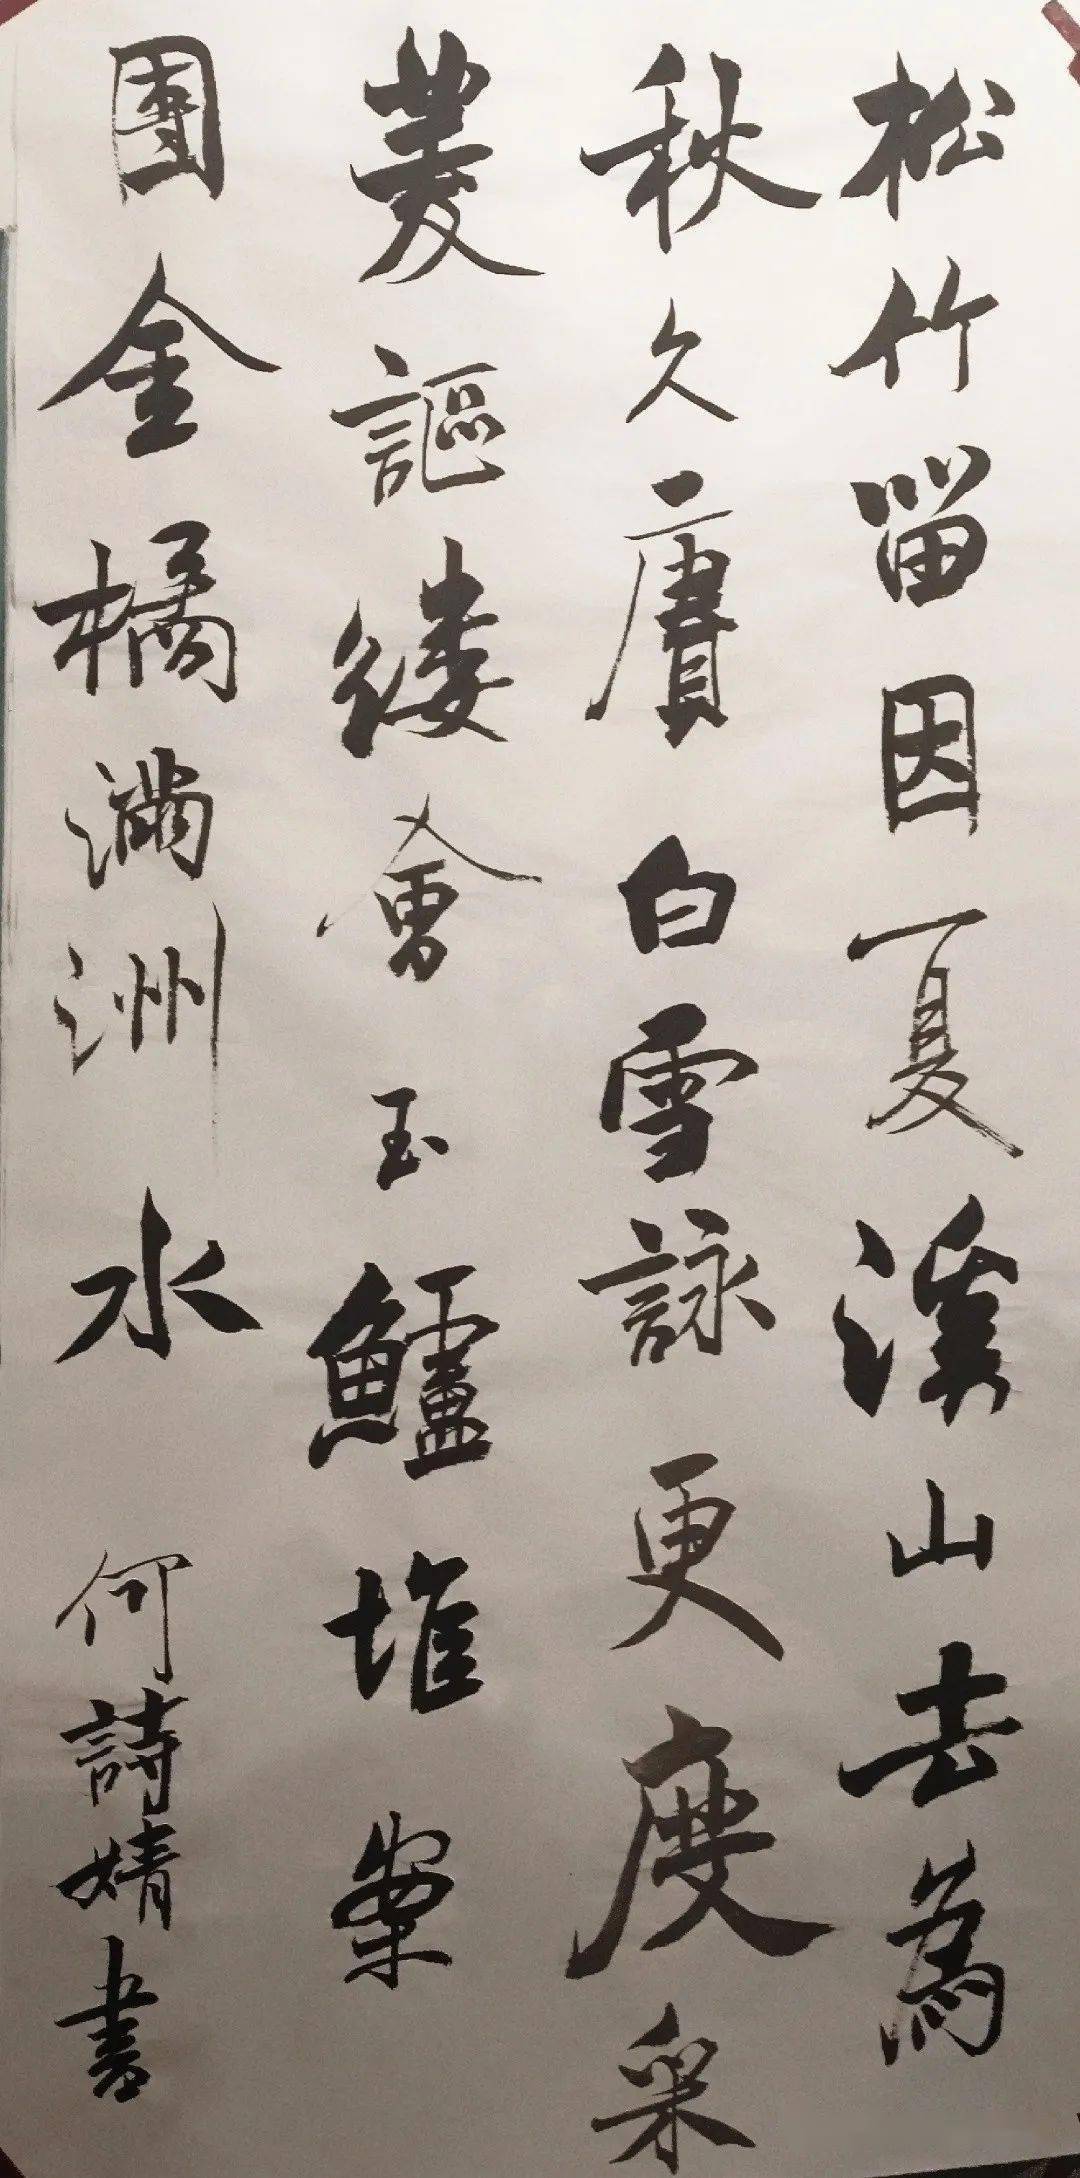 松竹留因夏溪山去為
秋久賡白雪詠更度采
菱謳縷會玉鱸堆案
團金橘滿洲水
何詩婧書